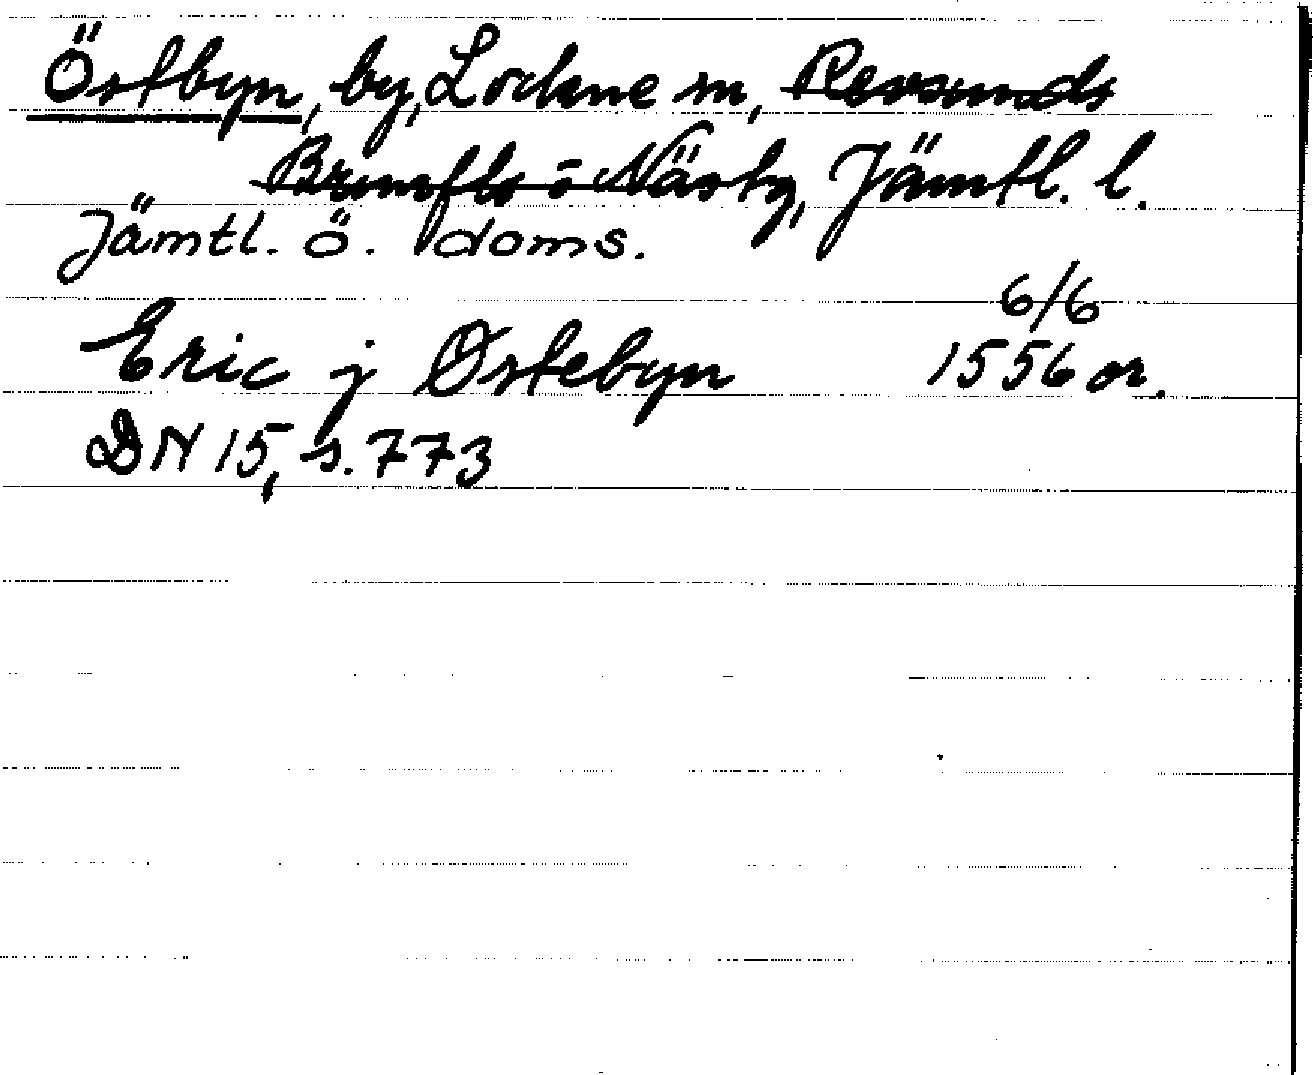 Östbyn, by, Lockne sn, Revsunds
Brunflo o Näs tg, Jämtl. l.
Jämtl. ö. doms.
6/6
Eric j Østebyn 1556 or.
DN 15, s. 773